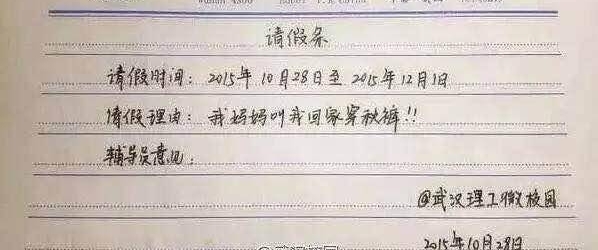 请假条
请假时间：2015年10月28日至2015年12月1日
请假理由：我妈妈叫我回家穿秋裤!!
辅导员意见：
@武汉理工微校园
2015年10月28日